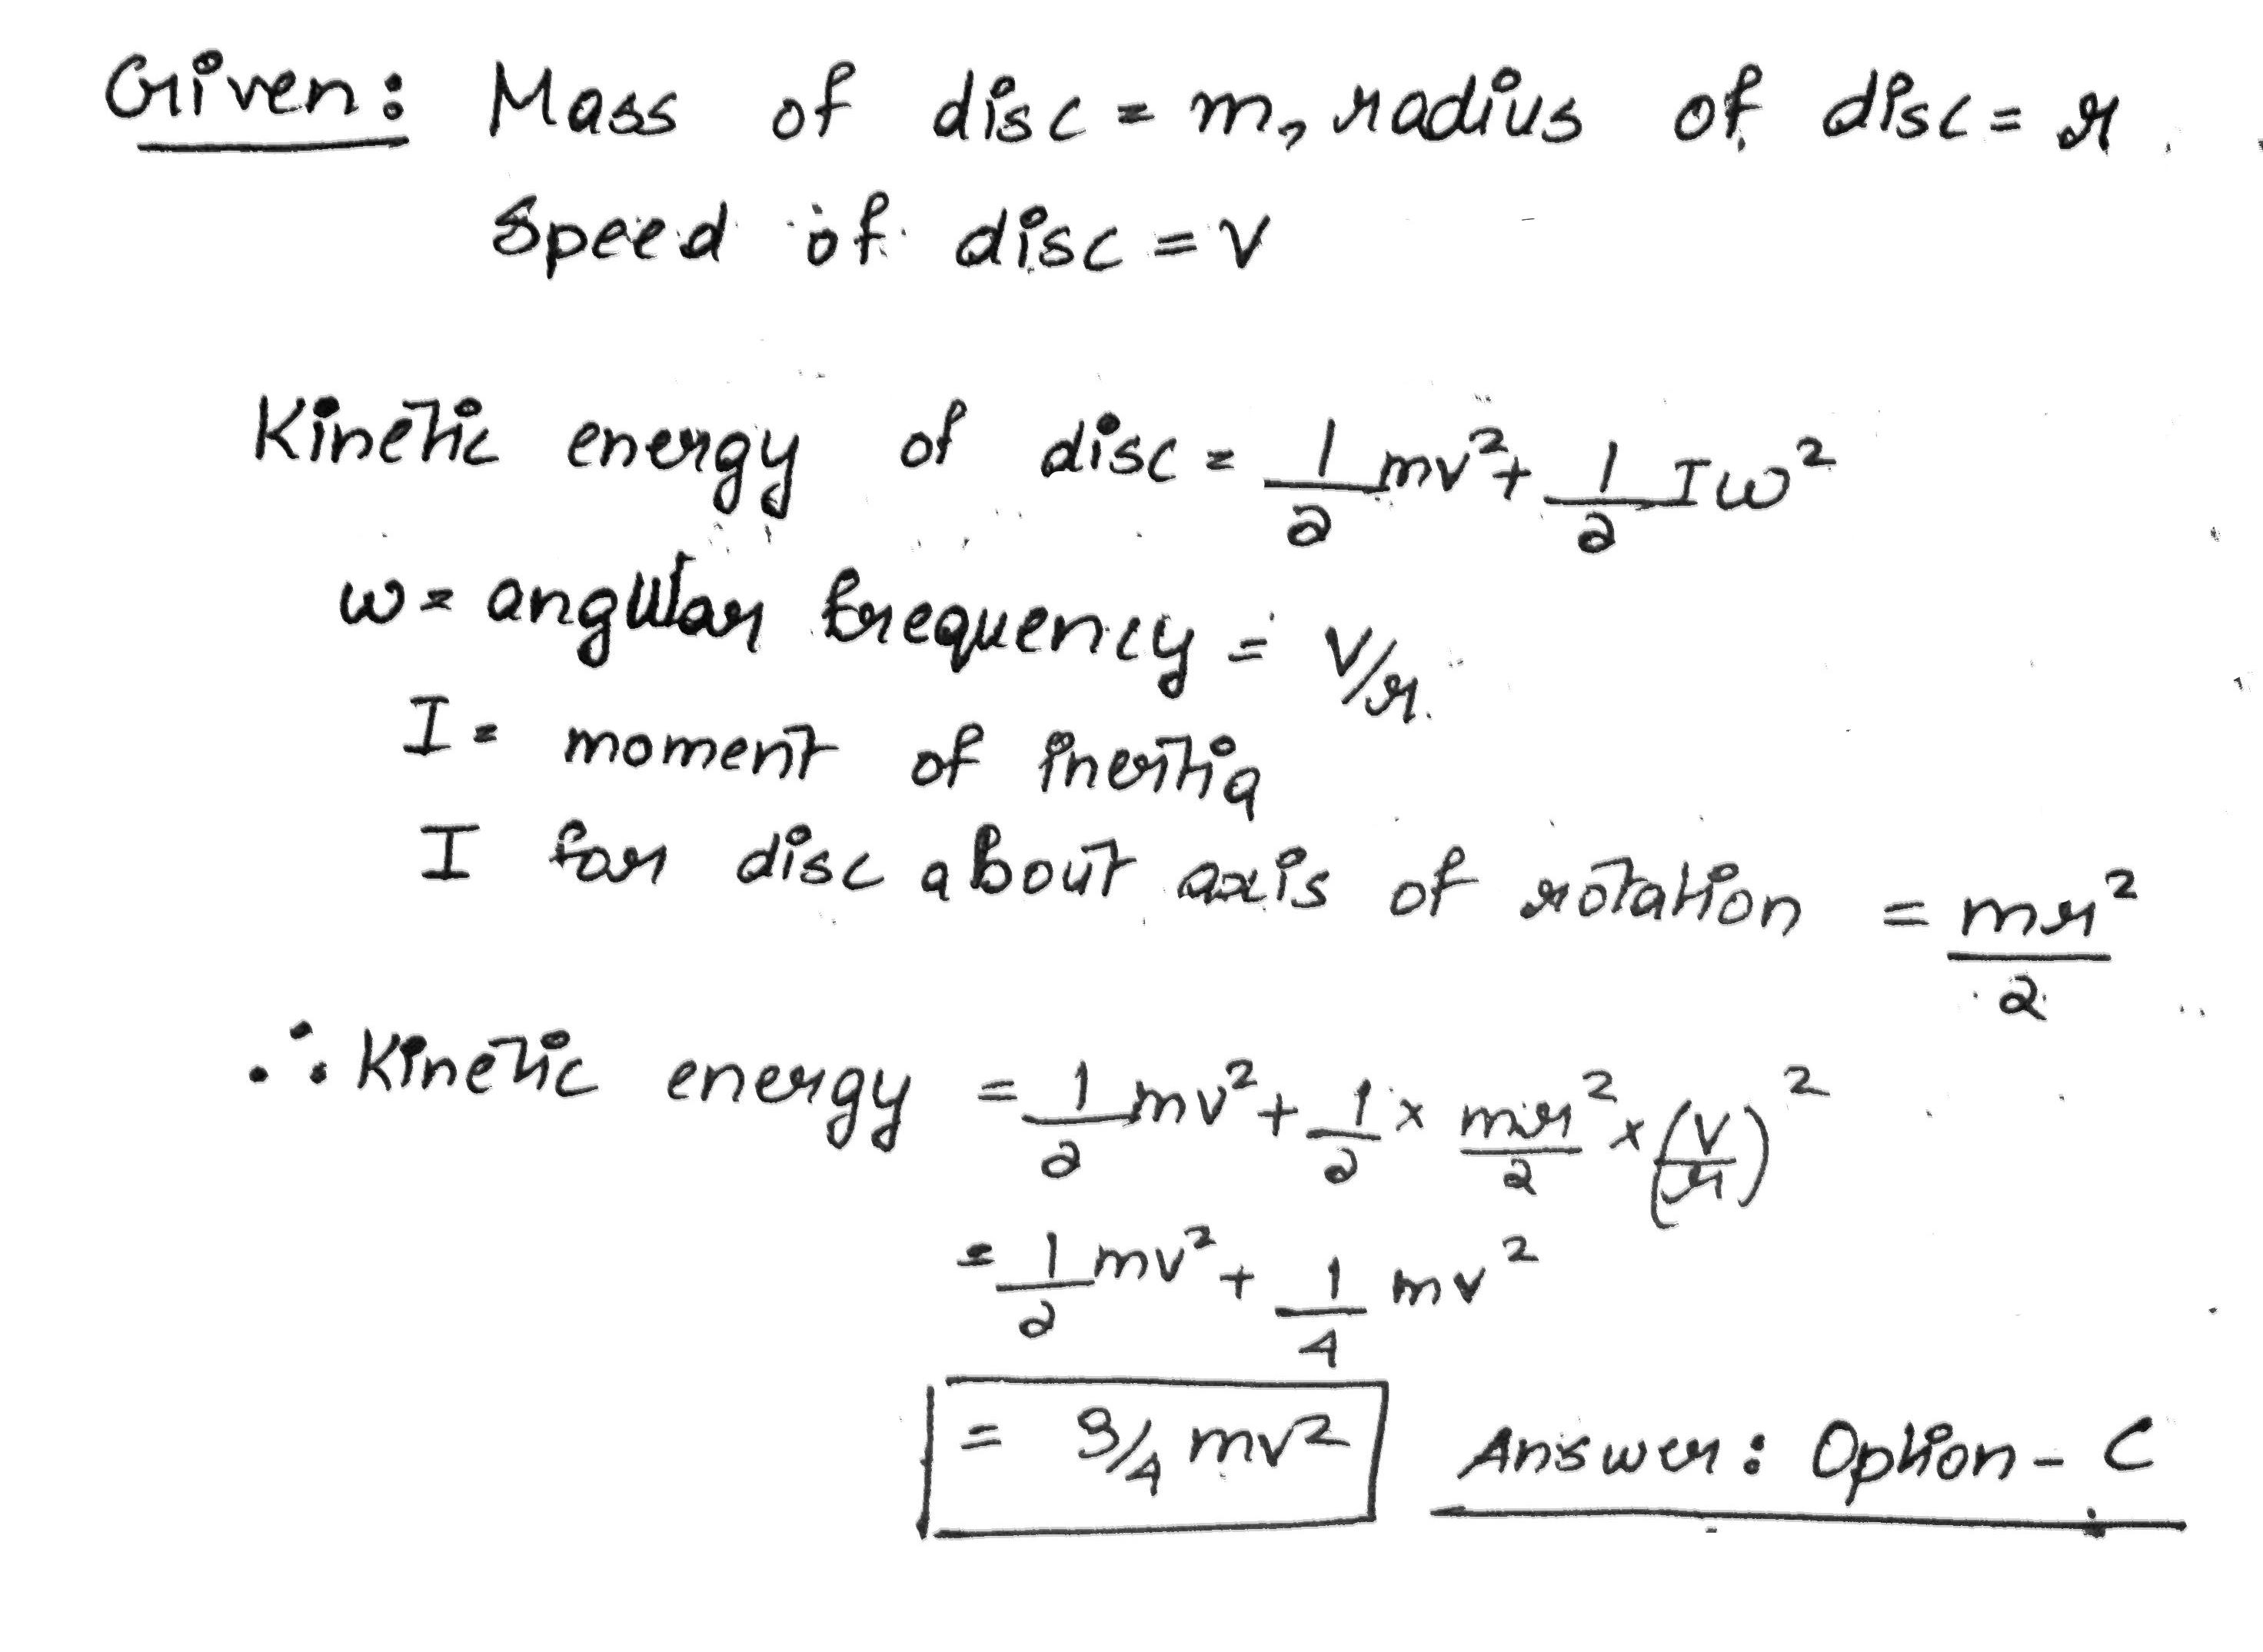 Given: Mass of disc = m, radius of disc = r.
Speed of disc = v
Kinetic energy of disc = 1/2 mv² + 1/2 Iω²
ω = angular frequency = v/r.
I = moment of inertia
I for disc about axis of rotation = mr²/2
∴ Kinetic energy = 1/2 mv² + 1/2 × mr²/2 × (v/r)²
= 1/2 mv² + 1/4 mv²
= 3/4 mv² Answer: Option - C